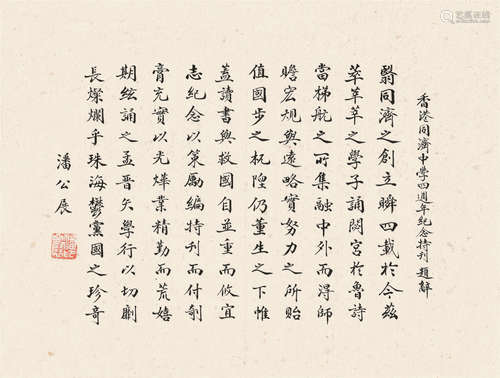 香港同濟中学四週年紀念特刊 題辭
翳同濟之創立瞬四載於今茲
萃莘莘之學子誦閟宮於魯詩
當梯航之所集融中外而得師
瞻宏規與遠略實努力之所貽
值國步之杌隉仍重生之下帷
蓋讀書與救國自並重而攸宜
志紀念以策勵編特刊而付剞
膏充實以光燁業精勤而荒嬉
期絃誦之孟晉矢學行以切劘
長燦爛乎珠海鬱黨國之珍奇
潘公展